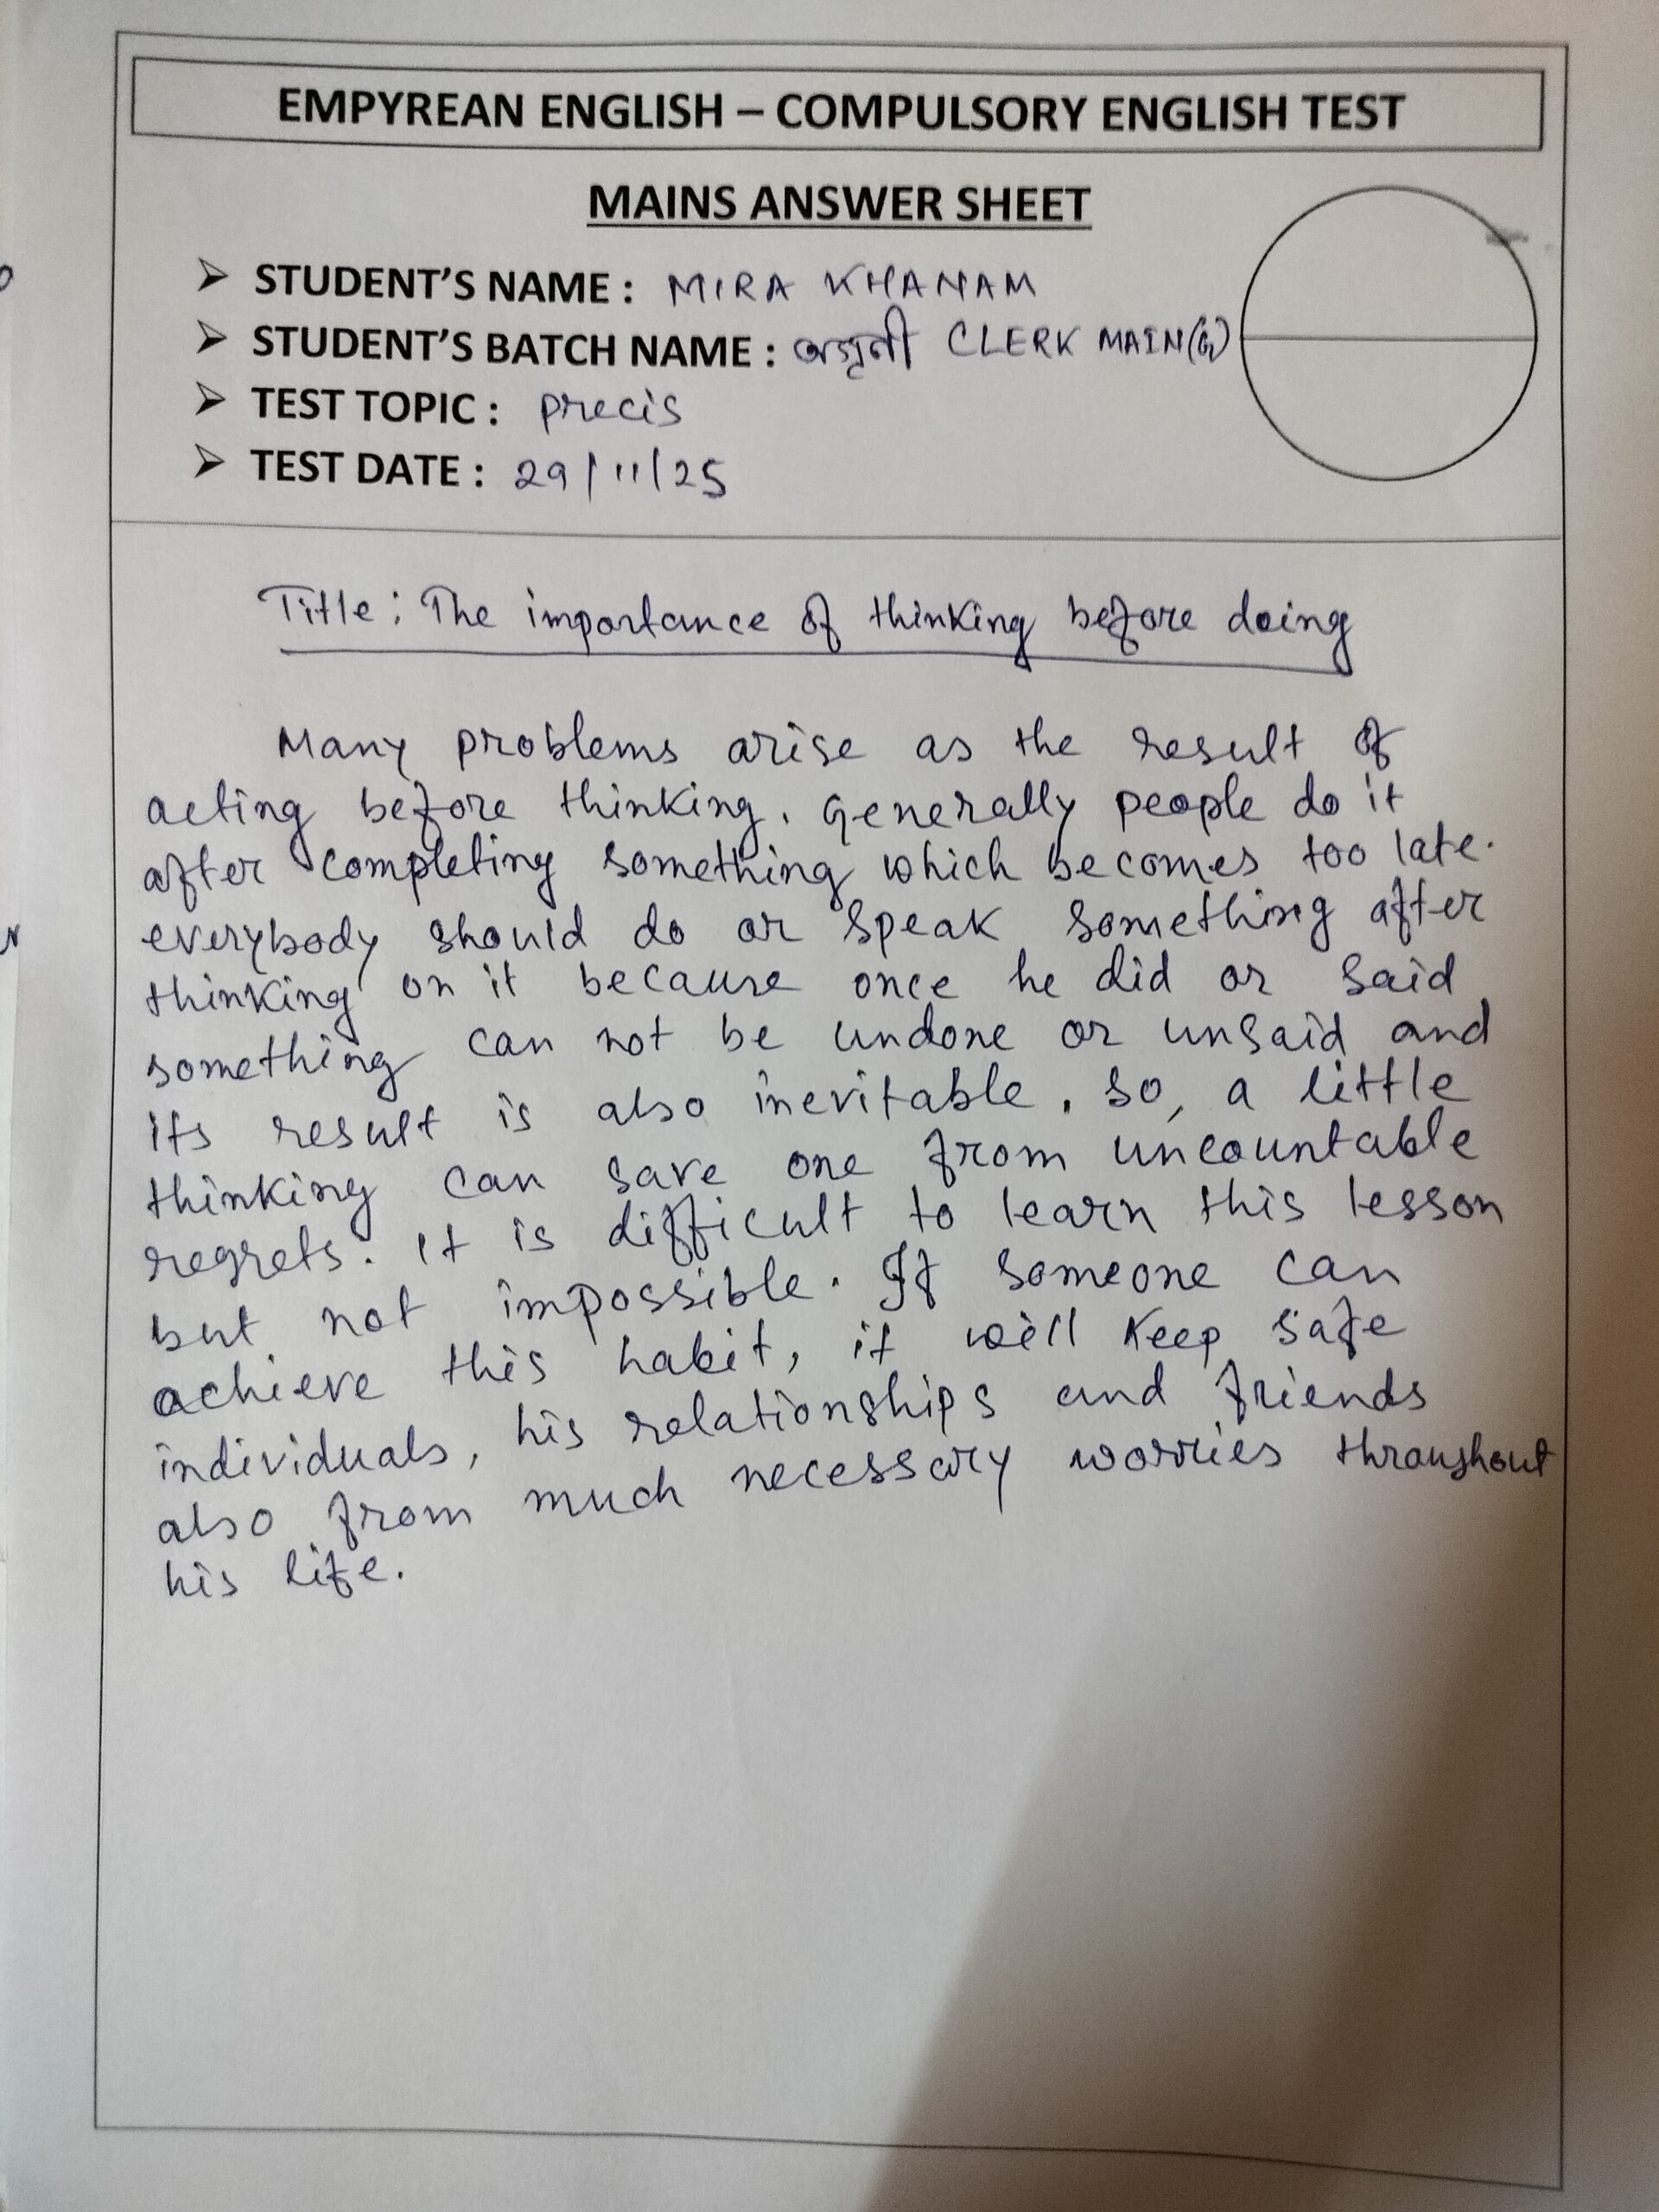 EMPYREAN ENGLISH – COMPULSORY ENGLISH TEST
MAINS ANSWER SHEET
➢ STUDENT'S NAME : MIRA KHANAM
➢ STUDENT'S BATCH NAME : CLERK MAIN(G)
➢ TEST TOPIC : precis
➢ TEST DATE : 29/11/25
Title: The importance of thinking before doing
Many problems arise as the result of
acting before thinking. Generally people do it
after completing something which becomes too late.
everybody should do or speak something after
thinking on it because once he did or said
something can not be undone or unsaid and
its result is also inevitable. So, a little
thinking can save one from uncountable
regrets. It is difficult to learn this lesson
but not impossible. If someone can
achieve this habit, it will keep safe
individuals, his relationships and friends
also from much necessary worries throughout
his life.